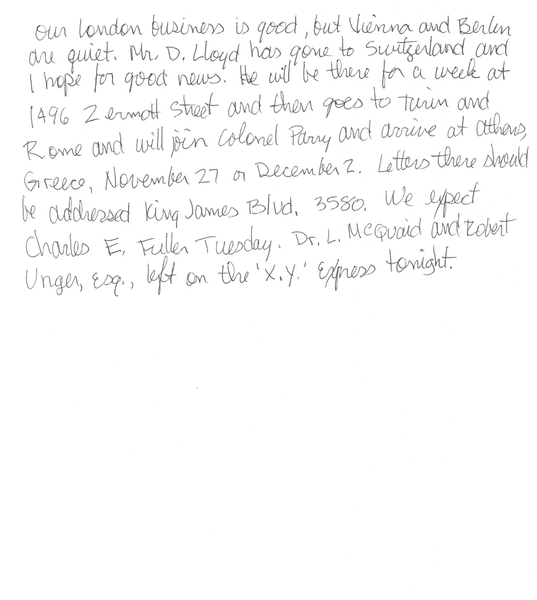 our London business is good, but Vienna and Berlin
are quiet. Mr. D. Lloyd has gone to Switzerland and
I hope for good news. He will be there for a week at
1496 Zermott Street and then goes to Turin and
Rome and will join Colonel Parry and arrive at Athens,
Greece, November 27 or December 2. Letters there should
be addressed King James Blvd. 3580. We expect
Charles E. Fuller Tuesday. Dr. L. McQuaid and Robert
Unger, Esq., left on the 'X.Y.' Express tonight.